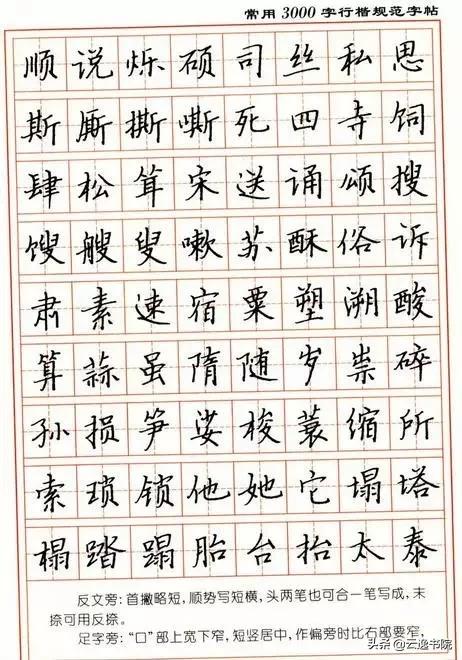 常用3000字行楷规范字帖
顺说烁硕司丝私思
斯厮撕嘶死四寺饲
肆松耸宋送诵颂搜
馊艘叟嗽苏酥俗诉
肃素速宿粟塑溯酸
算蒜虽隋随岁祟碎
孙损笋娑梭蓑缩所
索琐锁他她它塌塔
榻踏蹋胎台抬太泰
反文旁：首撇略短，顺势写短横，头两笔也可合一笔写成，末
捺可用反捺。
足字旁：“口”部上宽下窄，短竖居中，作偏旁时比右部要窄，
头条 @云逸书院